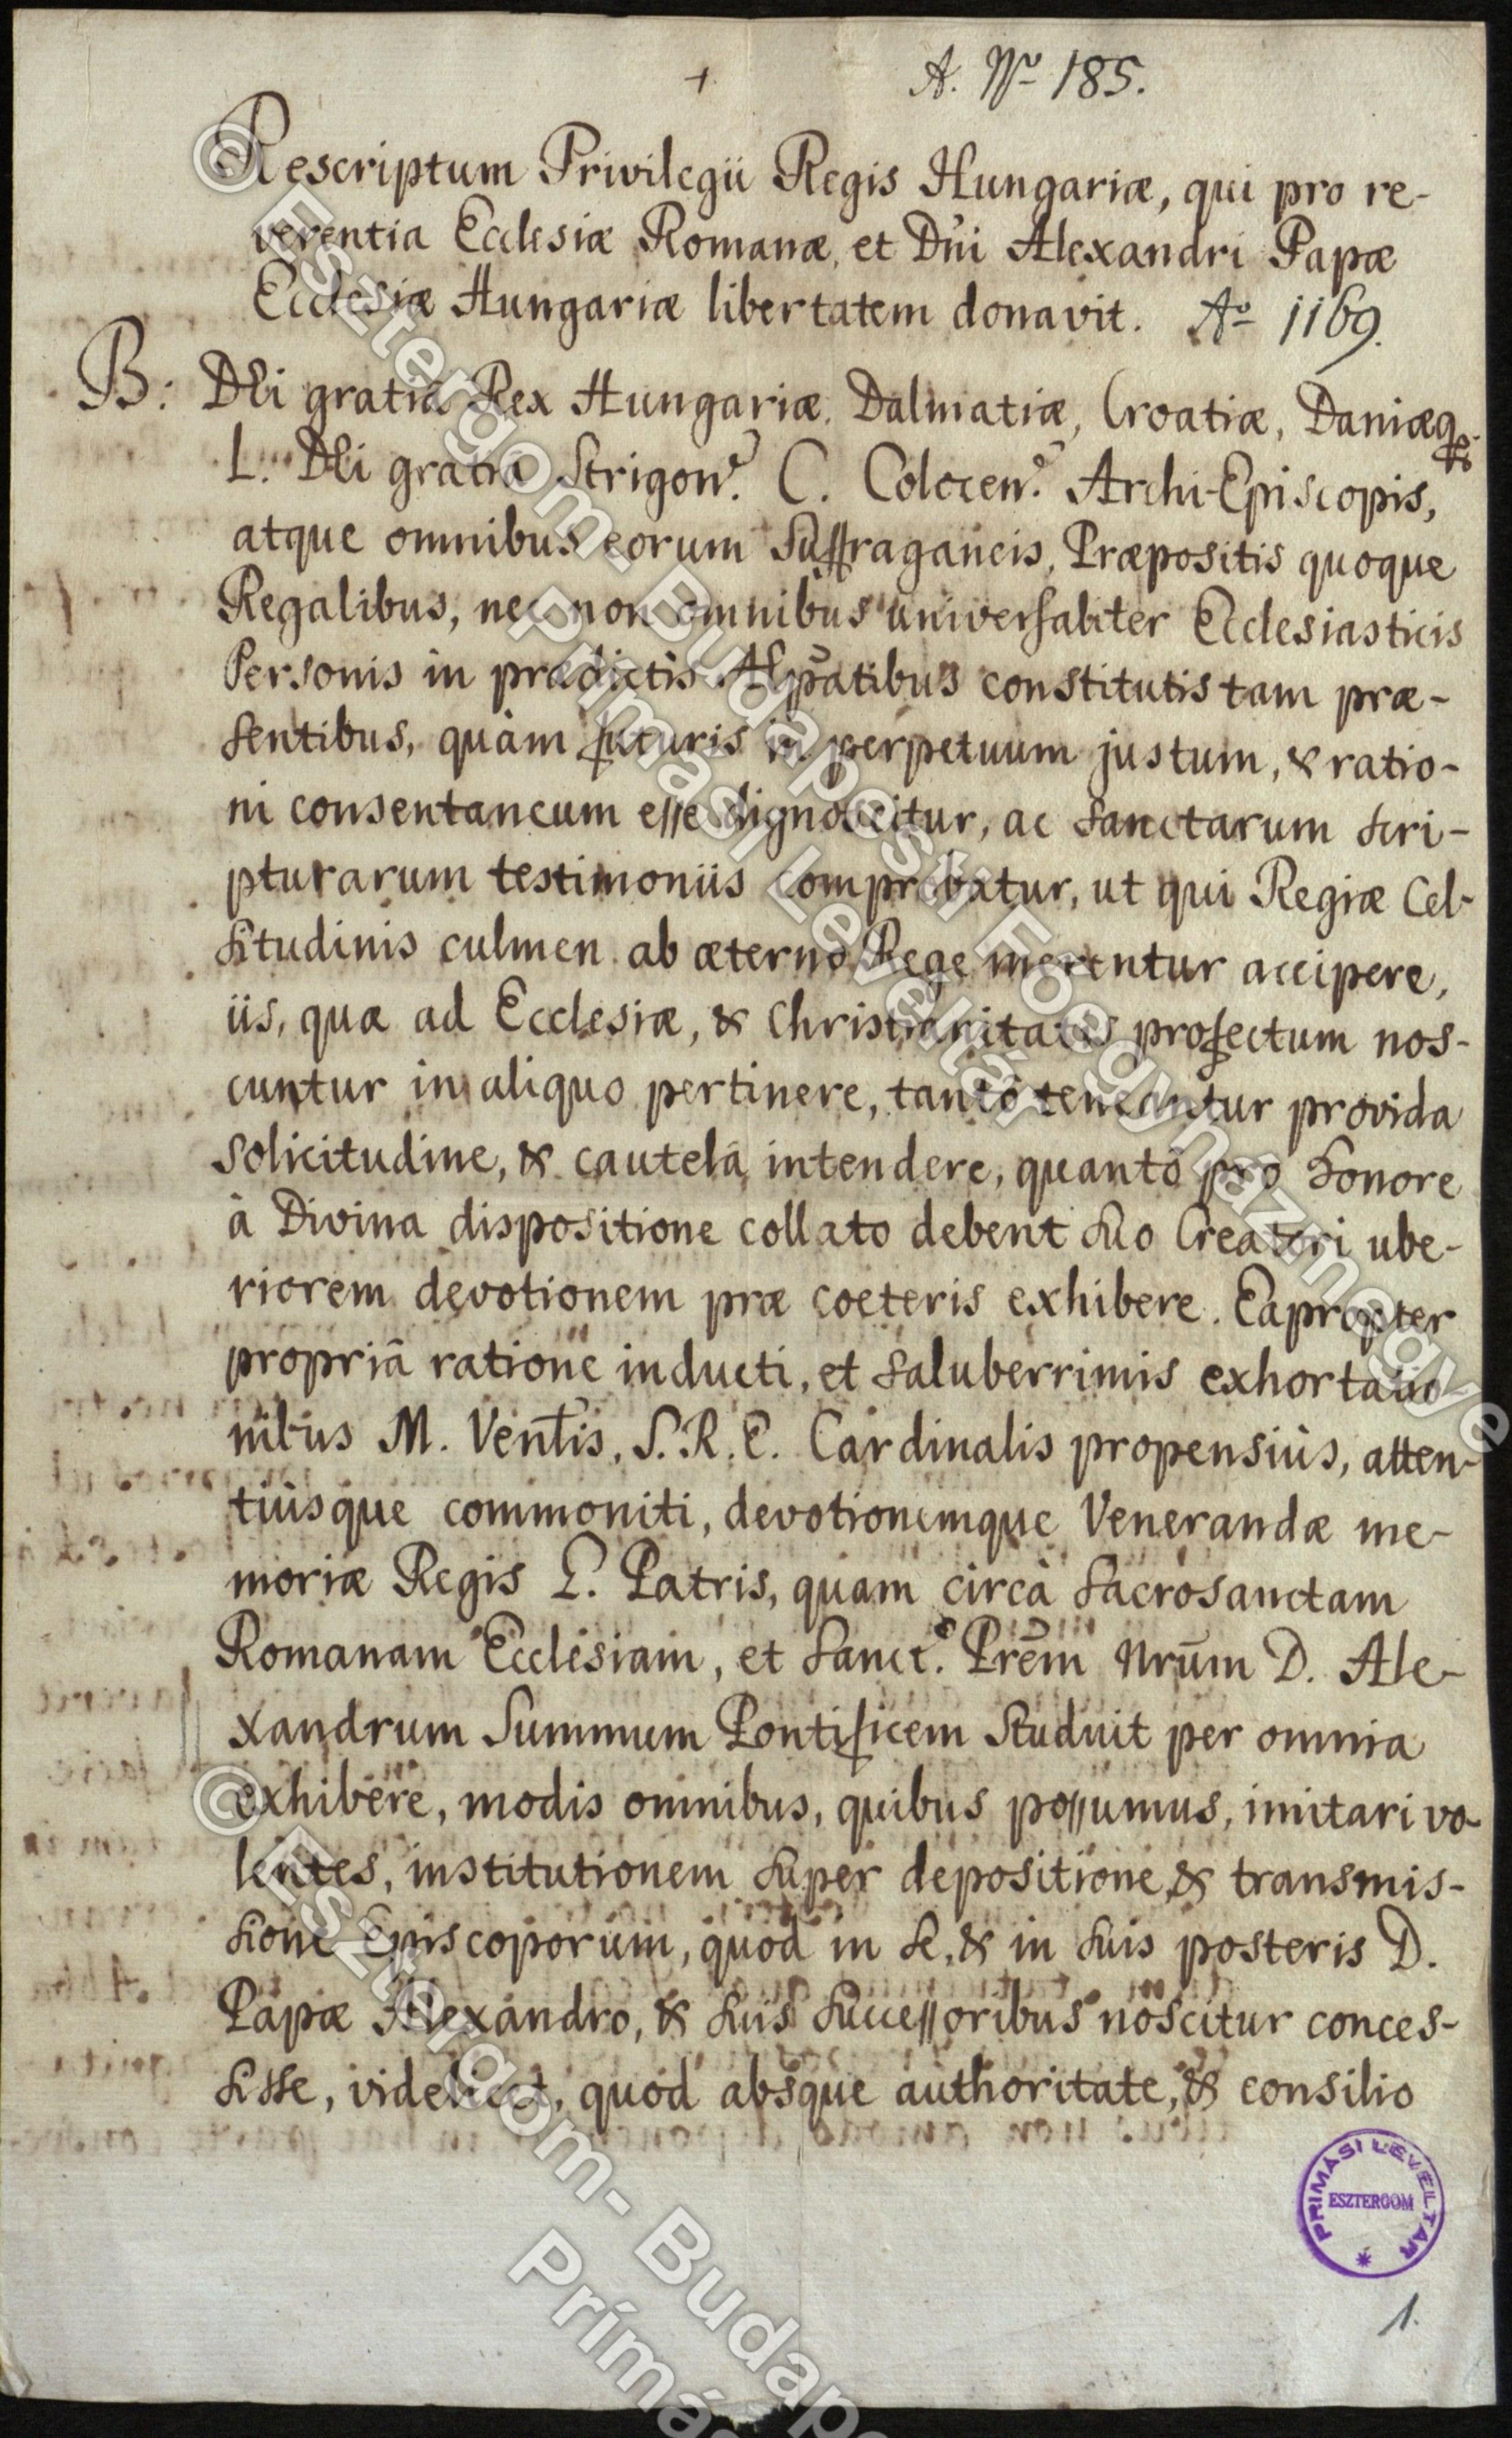 A. No 185.
Rescriptum Privilegii Regis Hungariæ, qui pro re-
verentia Ecclesiæ Romanæ, et Dn̄i Alexandri Papæ
Ecclesiæ Hungariæ libertatem donavit. Ao 1169.
B: DEi gratiâ Rex Hungariæ, Dalmatiæ, Croatiæ, Daniæq3
L. DEi gratiâ Strigon. C. Colocen. Archi-Episcopis,
atque omnibus eorum Suffraganeis, Præpositis quoque
Regalibus, nec non omnibus universaliter Ecclesiasticis
Personis in prædictis constitutis tam præ-
sentibus, quàm futuris in perpetuum justum, & ratio-
ni consentaneum esse dignoscitur, ac Sanctarum Scri-
pturarum testimoniis comprobatur, ut qui Regiæ Cel-
situdinis culmen ab æterno Rege merentur accipere,
iis, quæ ad Ecclesiæ, & Christianitatis profectum nos-
cuntur in aliquo pertinere, tantò teneantur provida
solicitudine, & cautelâ intendere, quantò pro honore
à Divina dispositione collato debent suo Creatori ube-
riorem devotionem præ coeteris exhibere. Eapropter
propriâ ratione inducti, et saluberrimis exhortatio
nibus M. Ven̄tis, S.R.E. Cardinalis propensiùs, atten-
tiùsque commoniti, devotionemque Venerandæ me-
moriæ Regis Patris, quam circà Sacrosanctam
Romanam Ecclesiam, et Sanct. Prēm Nrūm D. Ale-
xandrum Summum Pontificem Studuit per omnia
exhibere, modis omnibus, quibus possumus, imitari vo-
lentes, institutionem super depositione, & transmis-
sione Episcoporum, quod in se, & in suis posteris D.
Papæ Alexandro, & suis Successoribus noscitur conces-
sisse, videlicet, quod absque authoritate, & consilio
PRIMÁSI LEVÉLTÁR
ESZTERGOM
1.
© Esztergom- Budapesti Főegyházmegye
Prímási Levéltár
© Esztergom- Budape
Prímá